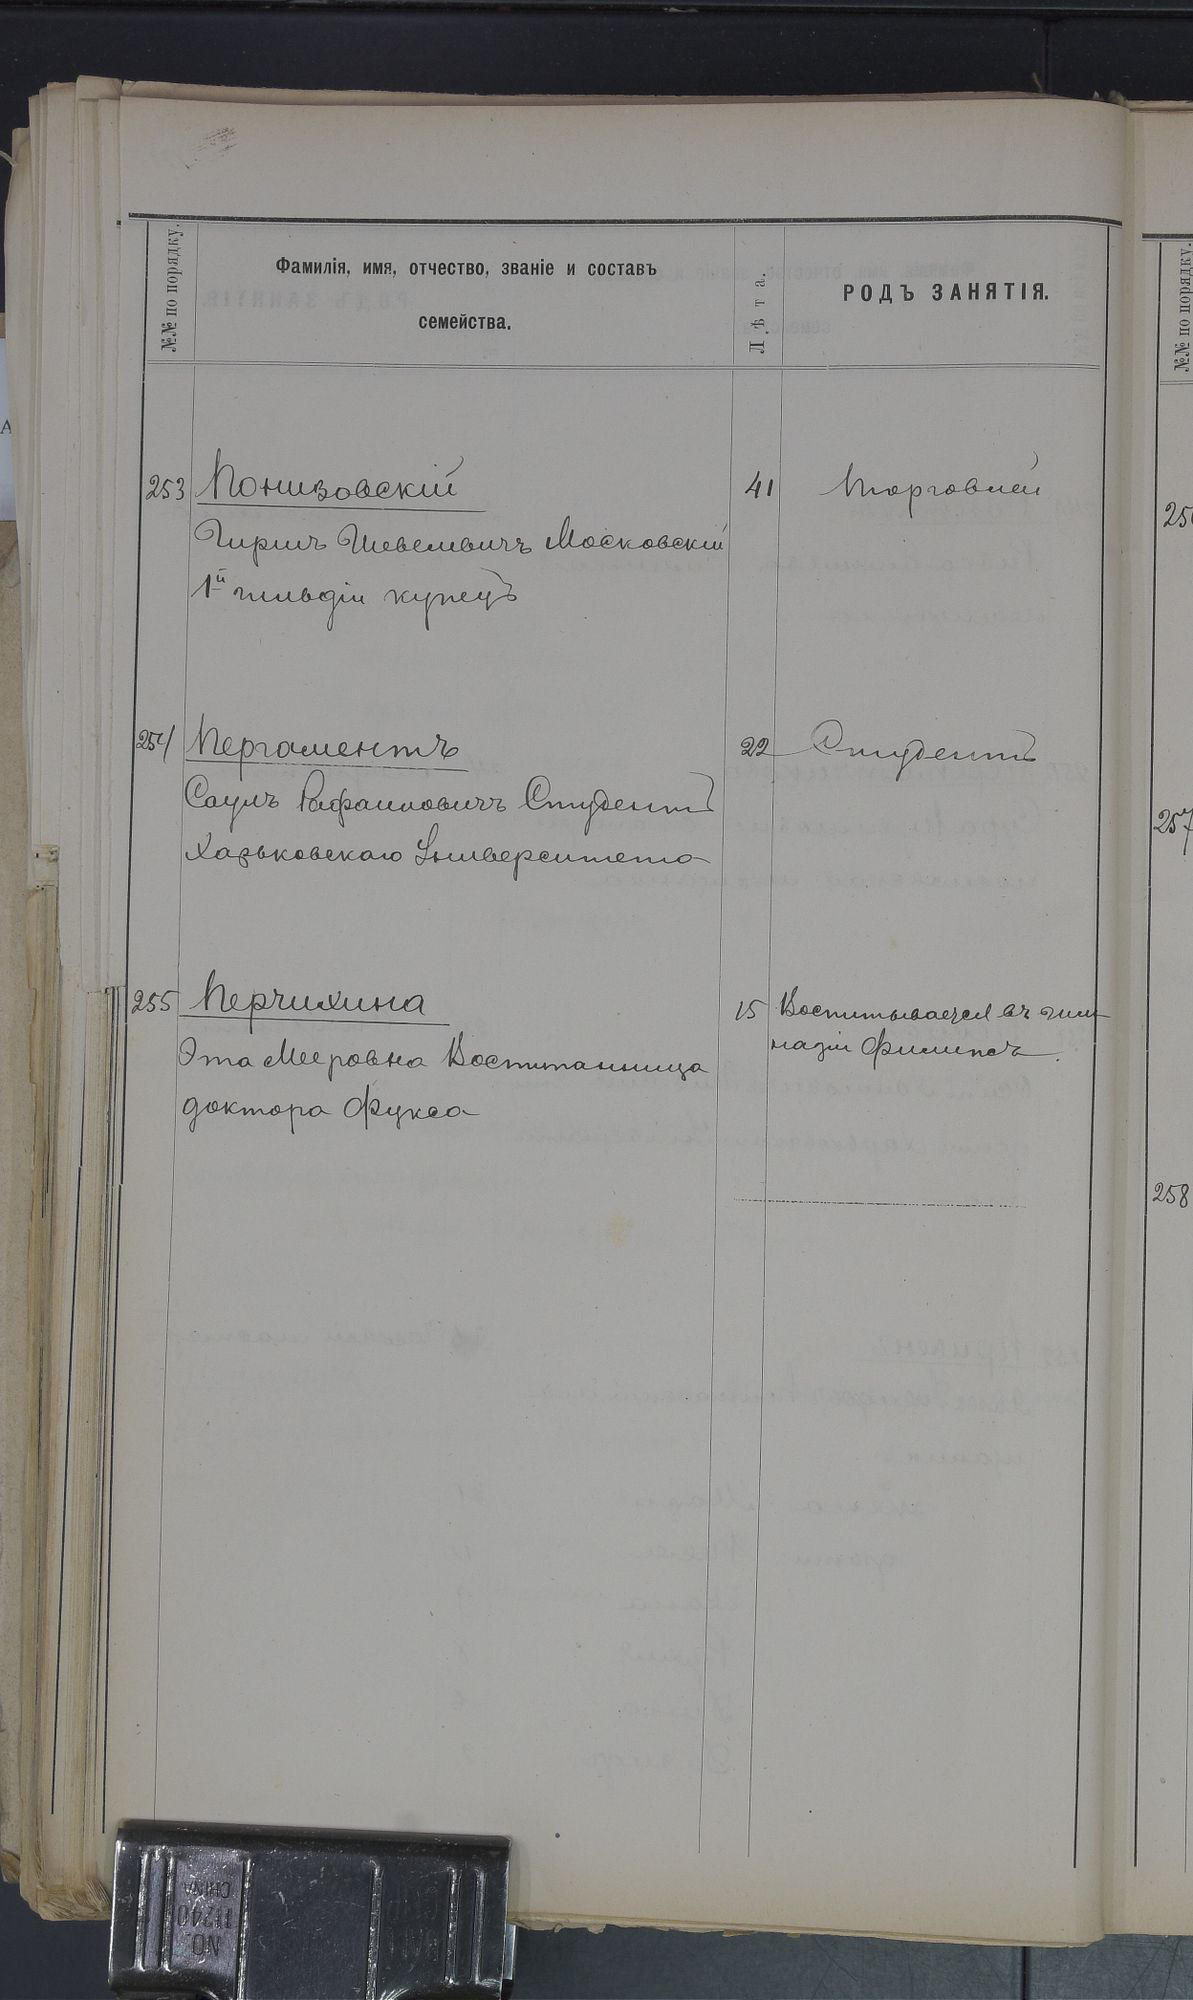 №№ по порядку.
Фамилія, имя, отчество, званіе и составъ
семейства.
Лѣта.
РОДЪ ЗАНЯТІЯ.
№№ по порядку.
253 Понизовскій 41 Торговлей
Гиршъ Шевелевичъ Московскій
1й гильдіи купецъ
254 Пергаментъ 22 Студентъ
Саулъ Рафаиловичъ Студентъ
Харьковскаго Университета
257
255 Перчихина 15 Воспитывается въ гим
назіи Филипсъ
Эта Мееровна Воспитанница
доктора Фукса
258
NO.
11240
CHINA